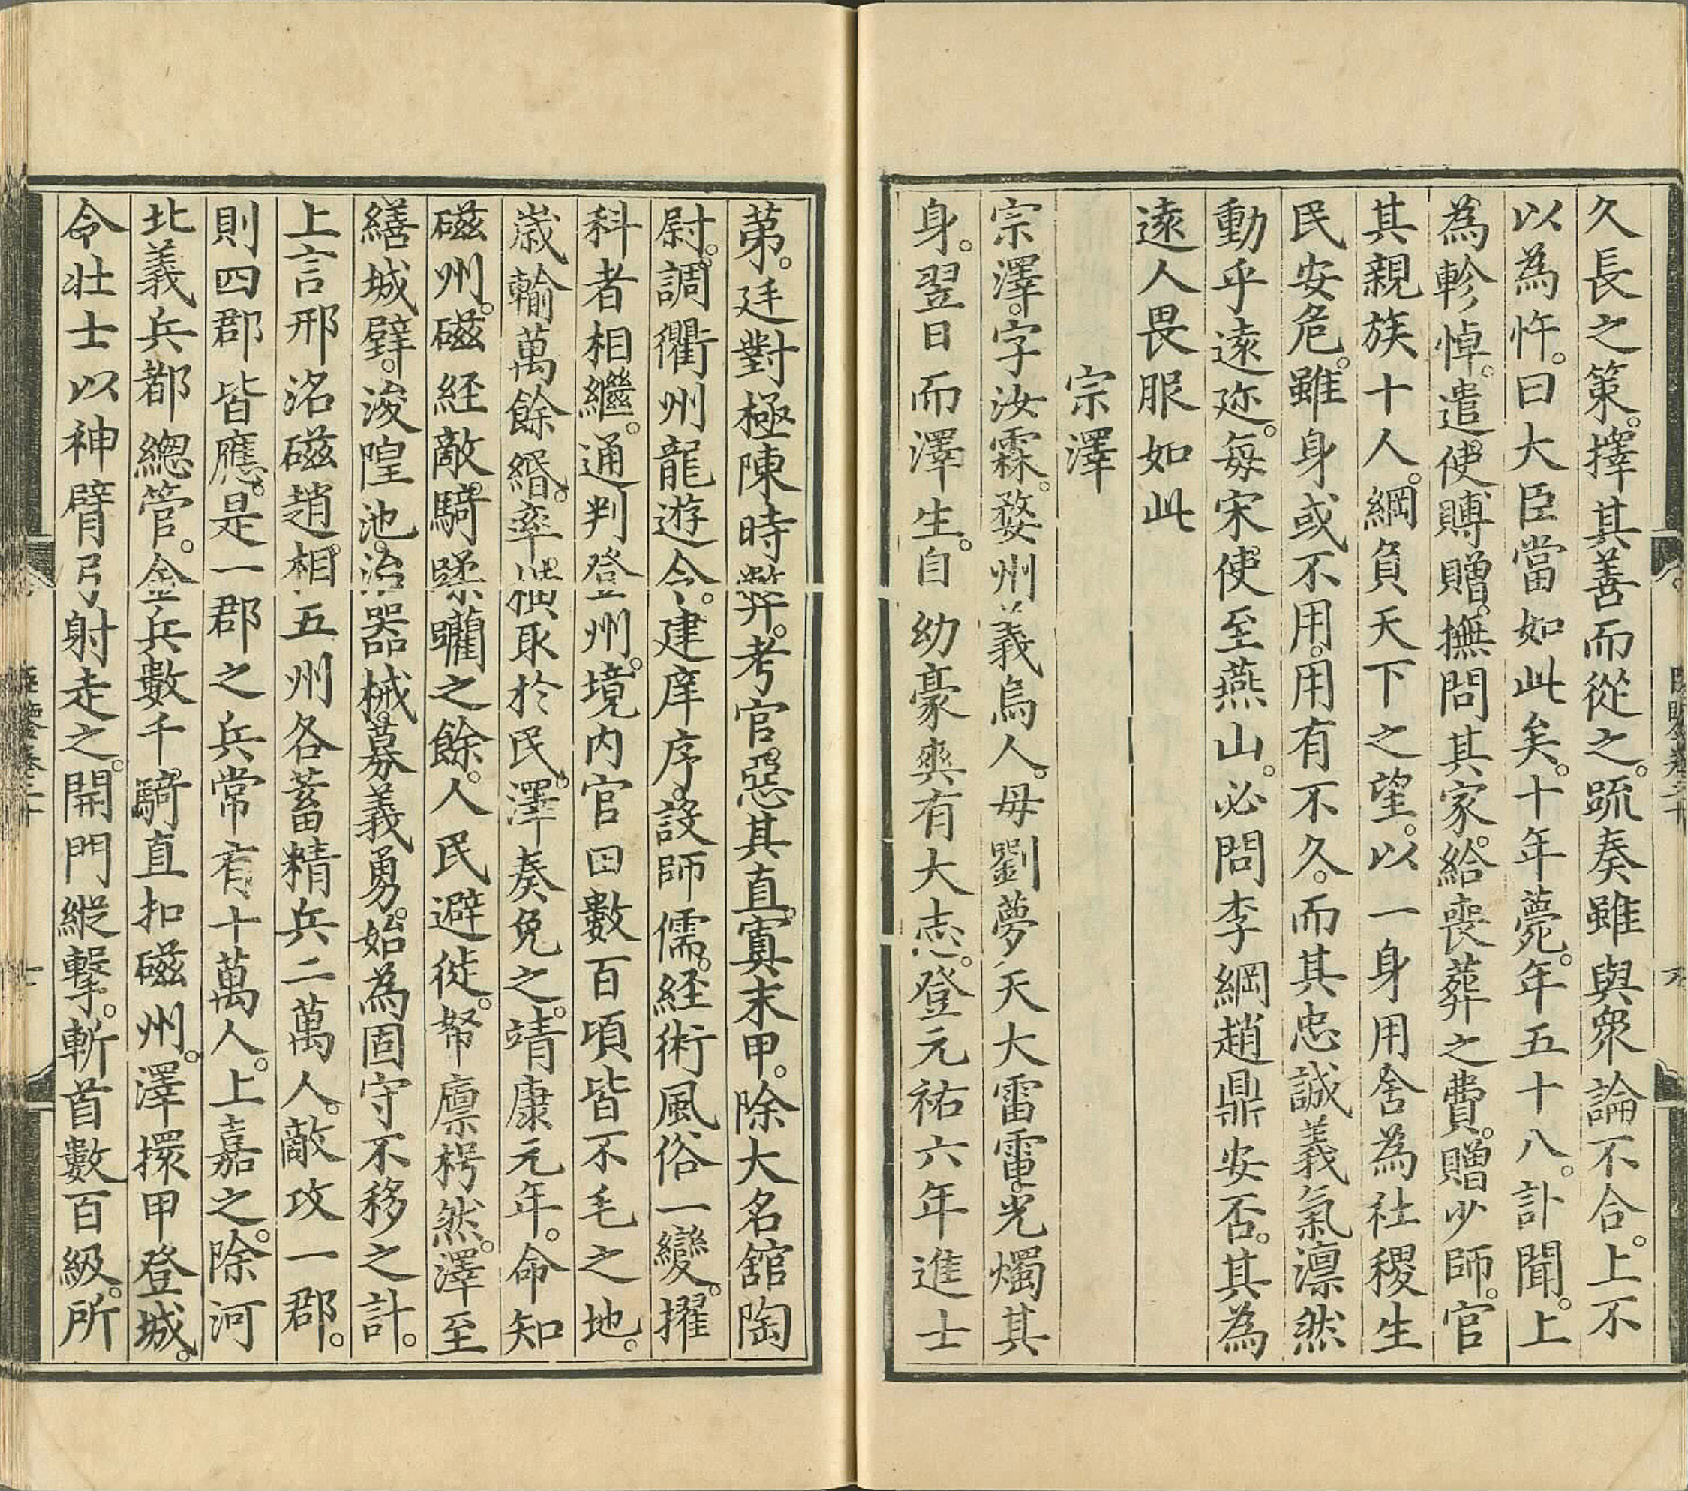 久長之策。擇其善而從之。疏奏雖與衆論不合。上不
以為忤。曰大臣當如此矣。十年薨。年五十八。訃聞。上
為軫悼。遣使賻贈。撫問其家。給喪葬之費。贈少師。官
其親族十人。綱負天下之望。以一身用舍為社稷生
民安危。雖身或不用。用有不久。而其忠誠義氣凛然
動乎遠迩。每宋使至燕山。必問李綱趙鼎安否。其為
遠人畏服如此
宗澤
宗澤。字汝霖。婺州義烏人。母劉夢天大雷電。光燭其
身。翌日而澤生。自幼豪爽有大志。登元祐六年進士
第。廷對極陳時弊。考官惡其直。寘末甲。除大名舘陶
尉。調衢州龍遊令。建庠序。設師儒。經術風俗一變。擢
科者相繼。通判登州。境内官田數百頃皆不毛之地。
歲輸萬餘緡。率橫取於民。澤奏免之。靖康元年。命知
磁州。磁経敵。騎蹂躪之餘。人民避徙。帑廪枵然。澤至
繕城壁。浚隍池。治器械。募義勇。始為固守不移之計。
上言邢洺磁趙。相五州各蓄精兵二萬人。敵攻一郡。
則四郡皆應。是一郡之兵常有十萬人。上嘉之。除河
北義兵都總管。金兵數千。騎直扣磁州。澤擐甲登城。
令壮士以神臂弓射走之。開門縱擊。斬首數百級。所